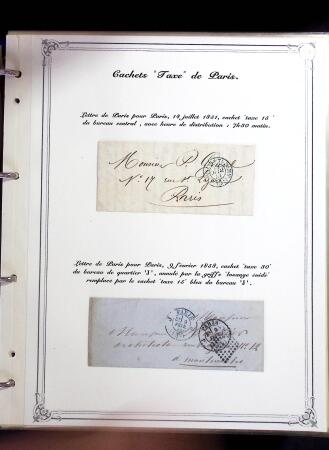 Cachets "Taxe" de Paris.
Lettre de Paris pour Paris, 14 juillet 1851, cachet 'taxe 15'
du bureau central, avec heure de distribution : 7h30 matin.
Monsieur P.
N° 17 rue
Paris
Lettre de Paris pour Paris, 9 février 1853, cachet 'taxe 30'
du bureau de quartier 'J', annulé par la griffe 'losange vide'
remplacé par le cachet 'taxe 15' bleu du bureau 'J'.
PARIS
Monsieur
architecte
à